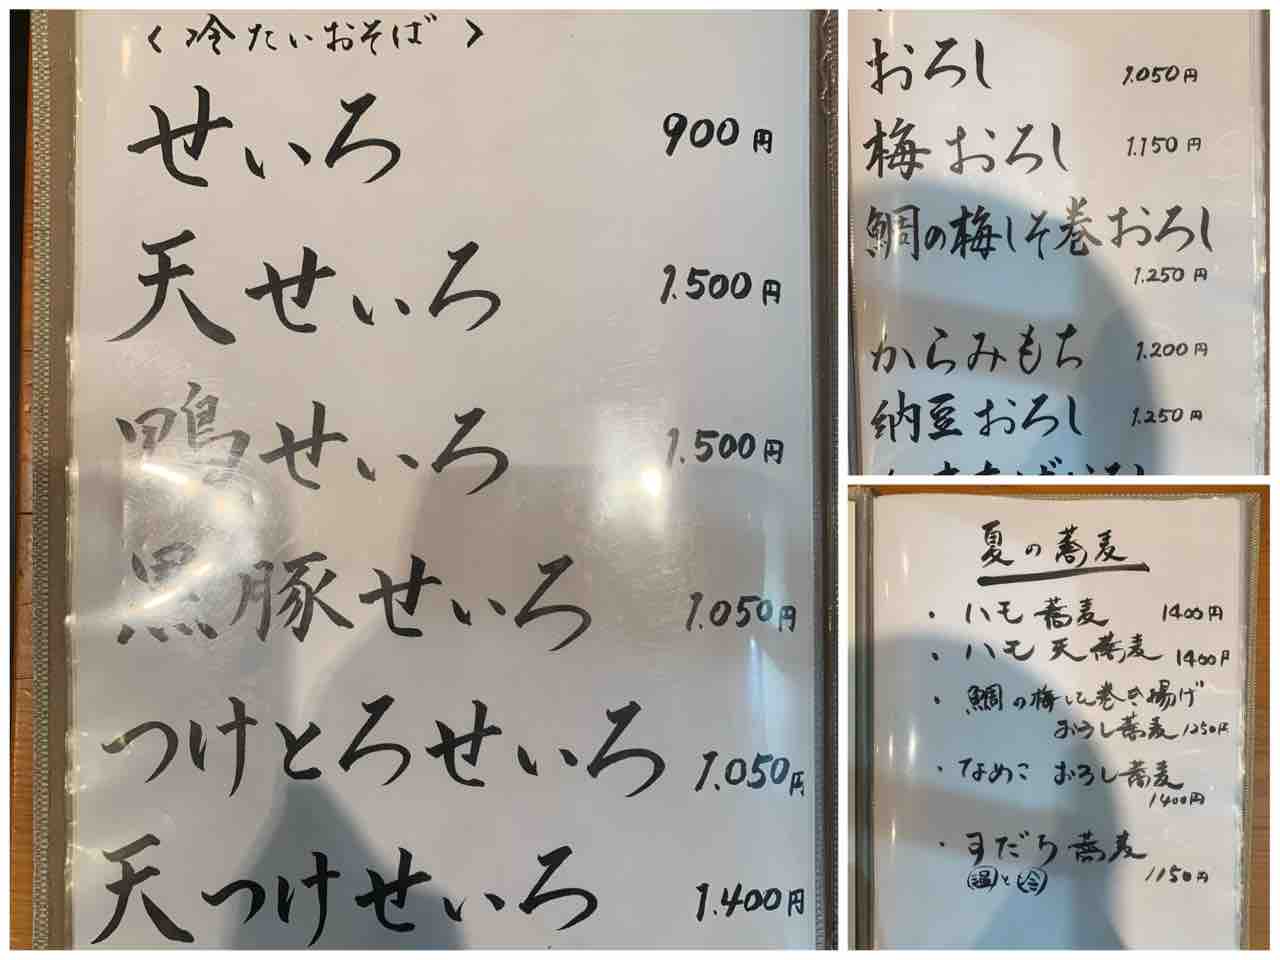 〈冷たいおそば〉
せいろ 900円
天せいろ 1.500円
鴨せいろ 1.500円
黒豚せいろ 1.050円
つけとろせいろ 1.050円
天つけせいろ 1.400円
おろし 1.050円
梅おろし 1.150円
鯛の梅しそ巻おろし
1.250円
からみもち 1.200円
納豆おろし 1.250円
夏の蕎麦
・ハモ蕎麦 1400円
・ハモ天蕎麦 1400円
・鯛の梅しそ巻き揚げ
おろし蕎麦 1250円
・なめこ おろし蕎麦
1400円
・すだち蕎麦
温と冷 1150円